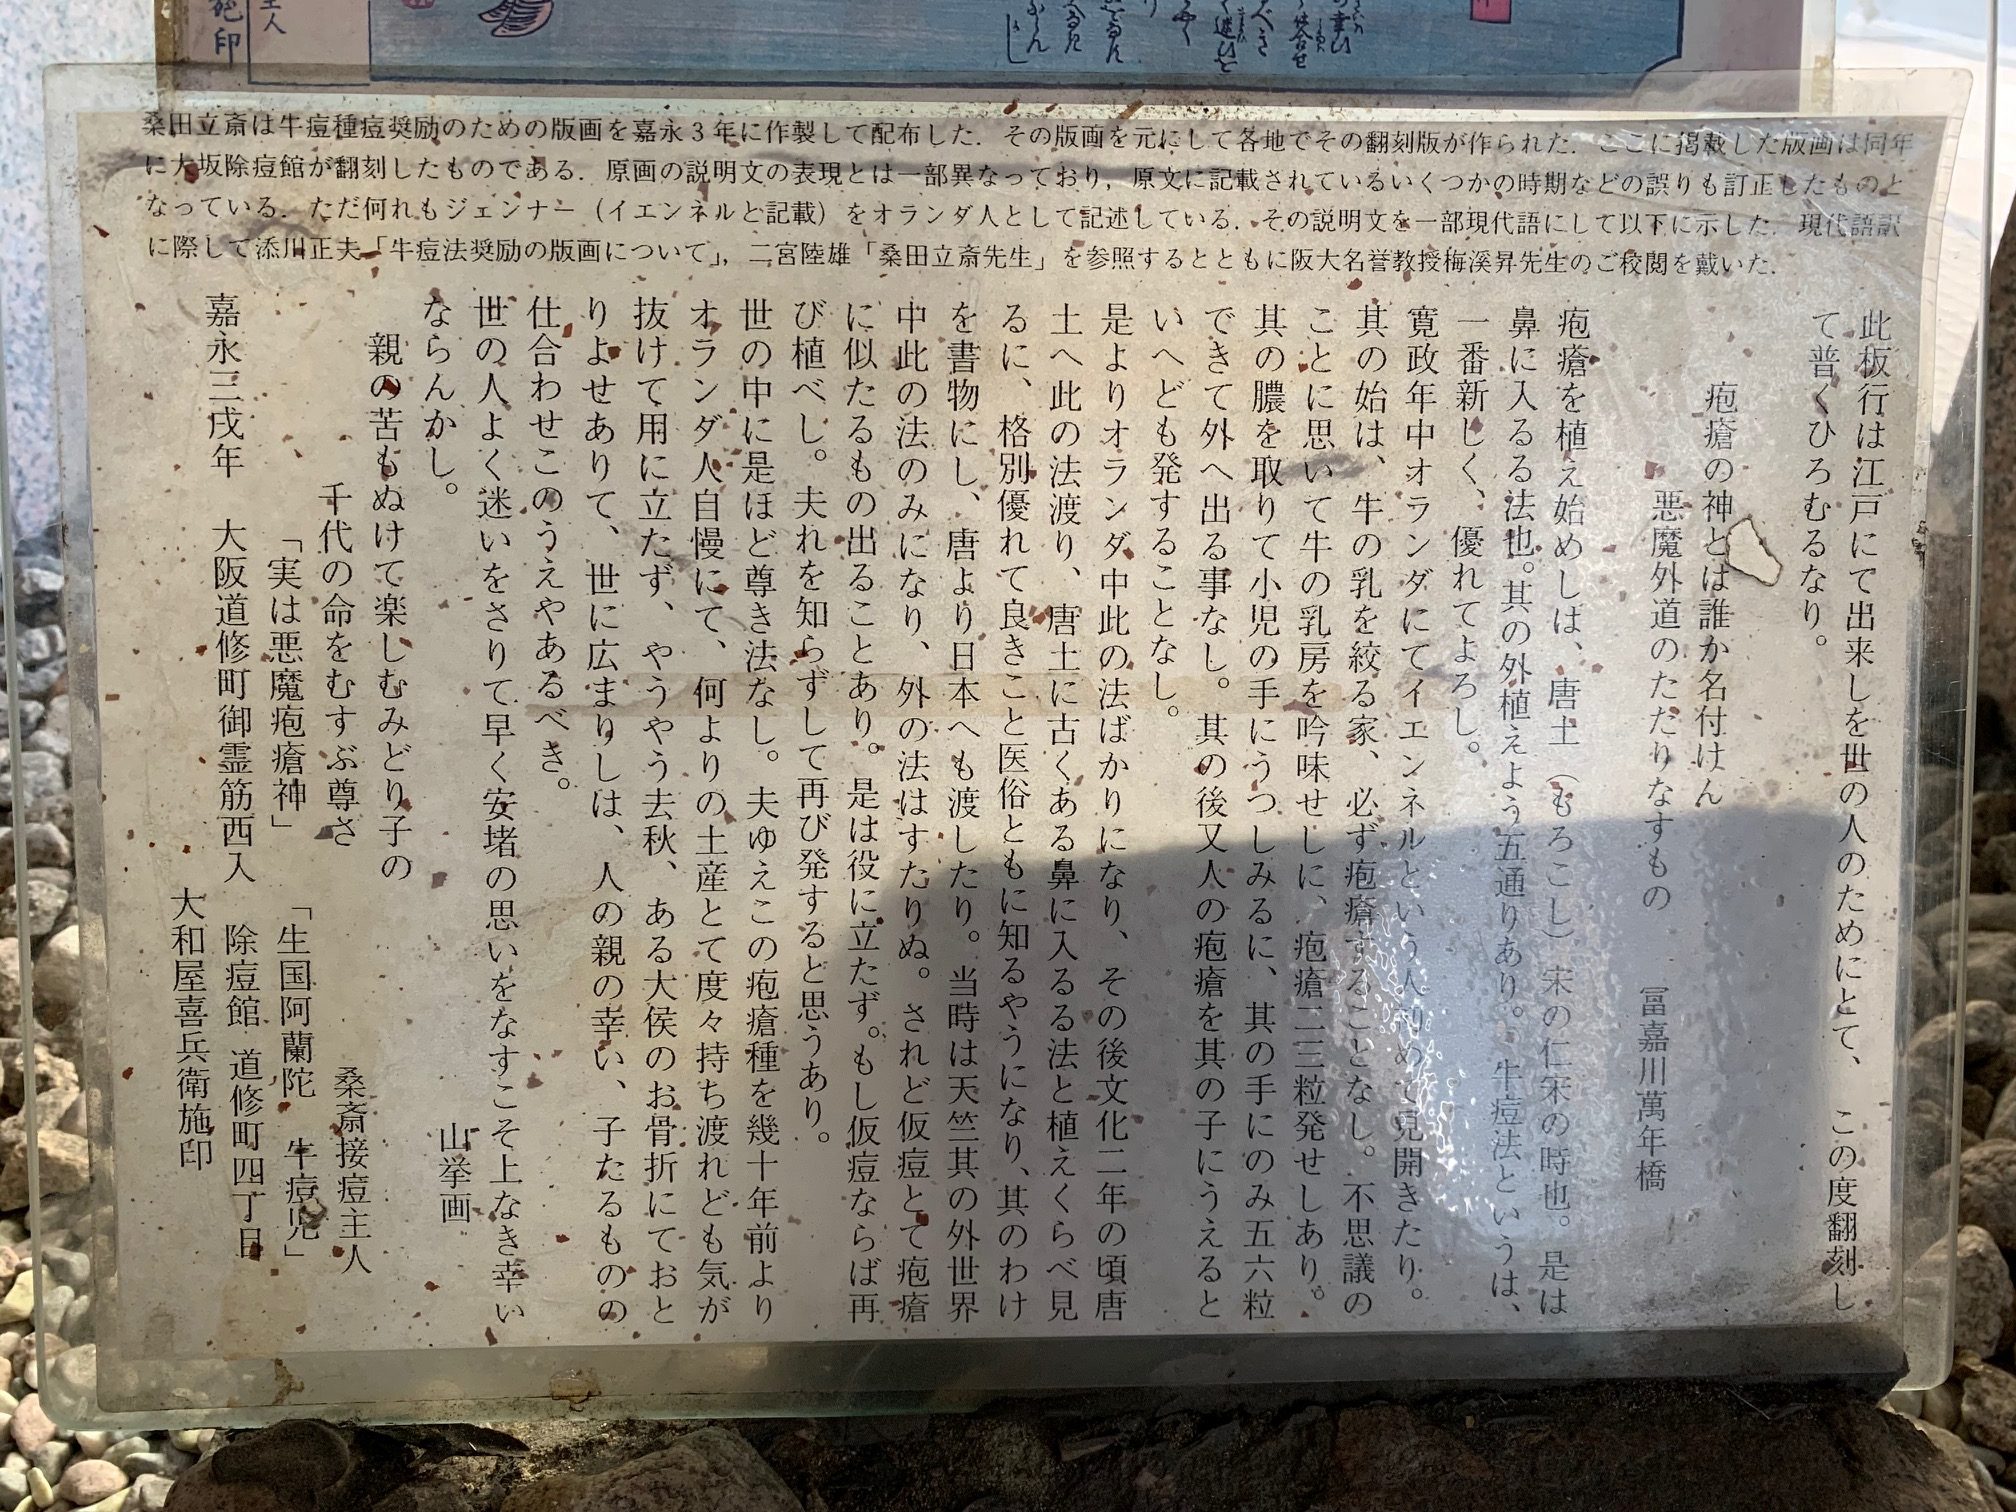 施印
主人
桑田立斎は牛痘種痘奨励のための版画を嘉永３年に作製して配布した．その版画を元にして各地でその翻刻版が作られた．ここに掲載した版画は同年
に大坂除痘館が翻刻したものである．原画の説明文の表現とは一部異なっており，原文に記載されているいくつかの時期などの誤りも訂正したものと
なっている．ただ何れもジェンナー（イエンネルと記載）をオランダ人として記述している．その説明文を一部現代語にして以下に示した．現代語訳
に際して添川正夫「牛痘法奨励の版画について」，二宮陸雄「桑田立斎先生」を参照するとともに阪大名誉教授梅溪昇先生のご校閲を戴いた．
此板行は江戸にて出来しを世の人のためにとて、この度翻刻し
て普くひろむるなり。
疱瘡の神とは誰か名付けん
悪魔外道のたたりなすもの　冨嘉川萬年橋
疱瘡を植え始めしは、唐土（もろこし）宋の仁宋の時也。是は
鼻に入るる法也。其の外植えよう五通りあり。牛痘法というは、
一番新しく、優れてよろし。
寛政年中オランダにてイエンネルという人初めて見開きたり。
其の始は、牛の乳を絞る家、必ず疱瘡することなし。不思議の
ことに思いて牛の乳房を吟味せしに、疱瘡二三粒発せしあり。
其の膿を取りて小児の手にうつしみるに、其の手にのみ五六粒
できて外へ出る事なし。其の後又人の疱瘡を其の子にうえると
いへども発することなし。
是よりオランダ中此の法ばかりになり、その後文化二年の頃唐
土へ此の法渡り、唐土に古くある鼻に入るる法と植えくらべ見
るに、格別優れて良きこと医俗ともに知るやうになり、其のわけ
を書物にし、唐より日本へも渡したり。当時は天竺其の外世界
中此の法のみになり、外の法はすたりぬ。されど仮痘とて疱瘡
に似たるもの出ることあり。是は役に立たず。もし仮痘ならば再
び植べし。夫れを知らずして再び発すると思うあり。
世の中に是ほど尊き法なし。夫ゆえこの疱瘡種を幾十年前より
オランダ人自慢にて、何よりの土産とて度々持ち渡れども気が
抜けて用に立たず、やうやう去秋、ある大侯のお骨折にておと
りよせありて、世に広まりしは、人の親の幸い、子たるものの
仕合わせこのうえやあるべき。
世の人よく迷いをさりて早く安堵の思いをなすこそ上なき幸い
ならんかし。　山挙画
親の苦もぬけて楽しむみどり子の
千代の命をむすぶ尊さ　桑斎接痘主人
「実は悪魔疱瘡神」　「生国阿蘭陀　牛痘児」
嘉永三戌年　大阪道修町御霊筋西入　除痘館　道修町四丁目
大和屋喜兵衛施印